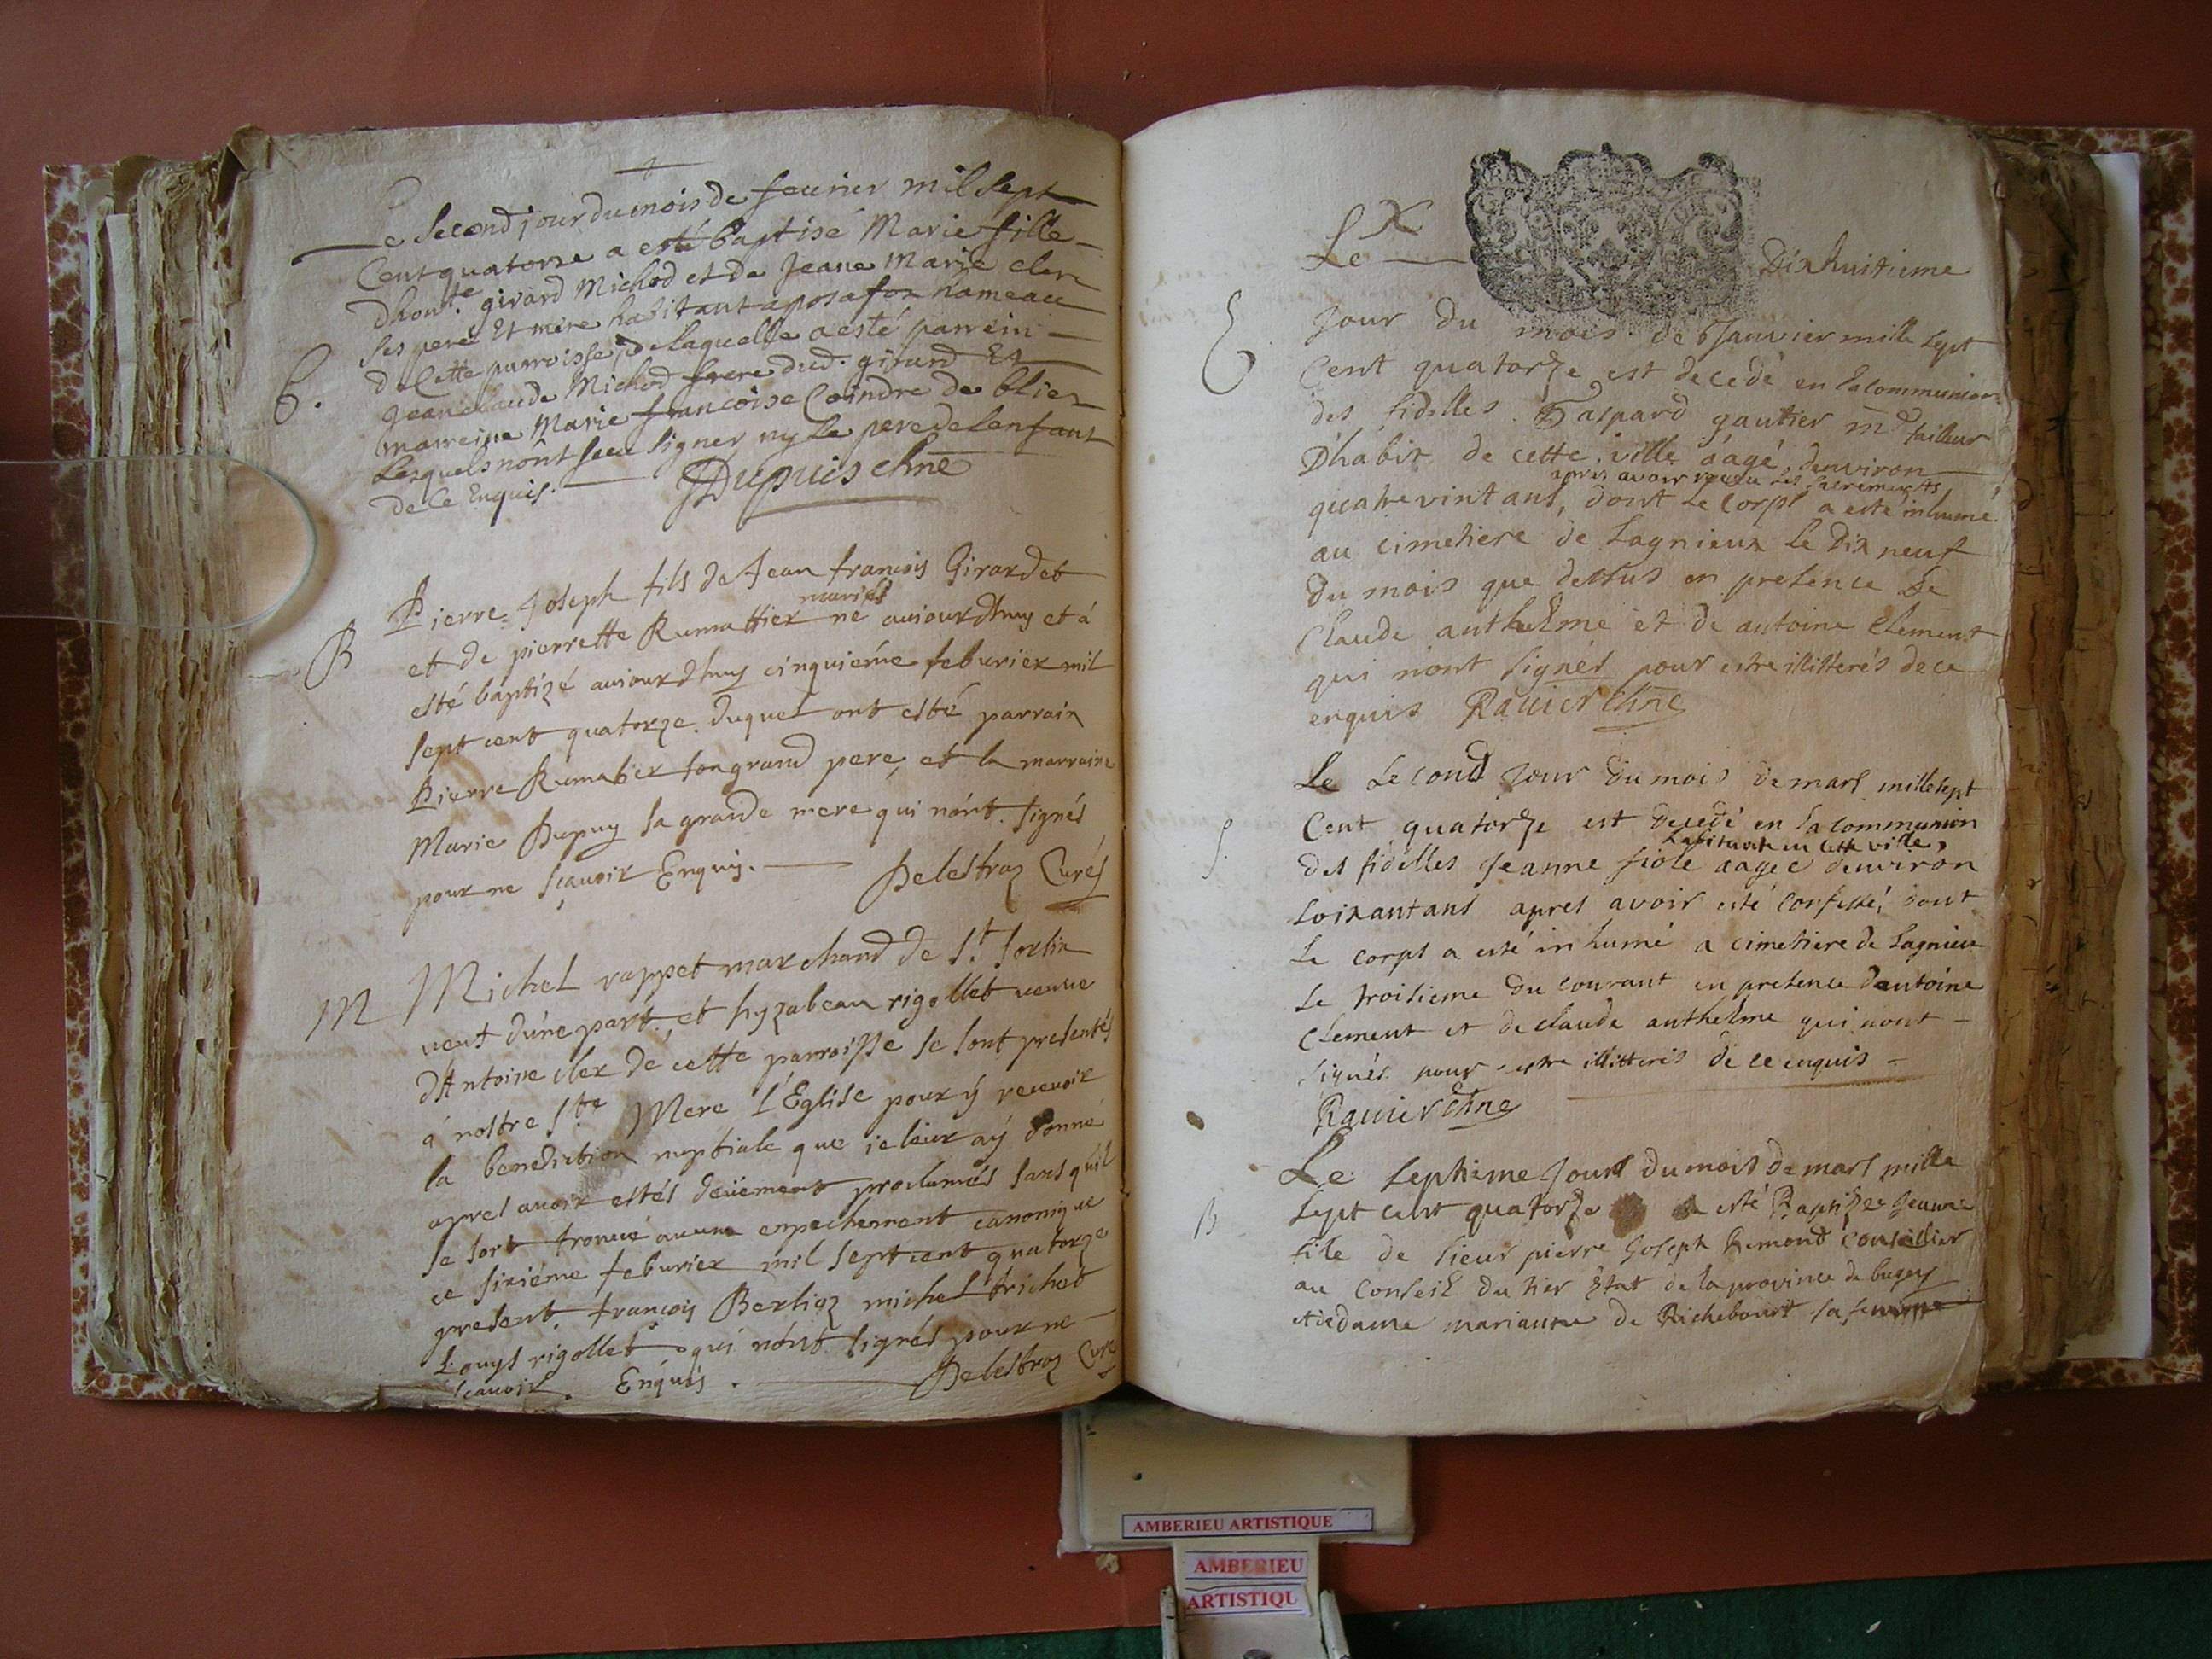 Le second jour du mois de feurier mil sept
Cent quatorze a esté baptisé Marie fille
Dhon.te girard Michod et de Jeane Marie cler
ses pere Et mere habitant a posafor hameau
de Cette parroisse de laquelle a esté parrein
B.
Jean claude Michod frere dud. girard Et
marreine Marie francoise Coindre de blier
Lesquels nônt sceu signer ny le pere de lenfant
de ce Enquis. Dupuis chne
Pierre Joseph fils de Jean francois Girardet
mariés
et de pierrette Rumattier né auiourdhuy et á
B
esté baptizé auiourdhuy cinquiéme feburier mil
sept cent quatorze. duquel ont esté parrain
Pierre Rumatier son grand pere, et la marraine
Marie Dupuy sa grande mere qui nónt signés
pour ne sçauoir Enquis. Delestraz Curé
M
Michel rappet marchand de St. Sorlin
ueuf dúne part. et hyzabeau rigollet ueuue
dAntoine cler de cette parroisse se sont presentés
á nostre Ste Mere l'Eglise pour ÿ receuoir
la benediction nuptiale que ie leur aÿ donné
apres auoir estés deüement proclamés sans quil
se soit trouué aucun enpechement canonique
ce sixiéme feburier mil sept cent quatorze
present. francois Berlioz michel trichet
Louys rigollet qui nónt signés pour ne
scauoir. Enquis. Delestraz Curé
Le Dixhuitieme
jour du mois de Janvier mille sept
Cent quatorze est decedé en la communion
des fidelles Gaspard gautier md tailleur
D'habit de cette ville áagé denviron
apres avoir receu ses sacrements
quatrevint ans, dont le corps a esté inhumé
au cimetiere de Lagnieux le dix neuf
du mois que dessus en presence de
Claude anthelme et de antoine Clement
qui n'ont signés pour estre illitterés de ce
enquis Rauier chne
Le second jour du mois de mars mille sept
Cent quatorze est decedé en la communion
habitante en cette ville,
S.
des fidelles Jeanne fiole aagee denviron
soixantans apres avoir esté confessé, dont
le corps a esté inhumé a cimetiere de Lagnieu
le troisieme du courant en presence dantoine
Clement et de claude anthelme qui nont
signés pour estre illitterés de ce enquis
Rauier chne
Le septieme jour du mois de mars mille
B
sept cent quatorze a esté Baptizee Jeanne
fille de sieur pierre Joseph Remond conseillier
au Conseil du tier Etat de la province de bugey
et de dame marianne de Richebourt sa femme
AMBERIEU ARTISTIQUE
AMBERIEU
ARTISTIQU